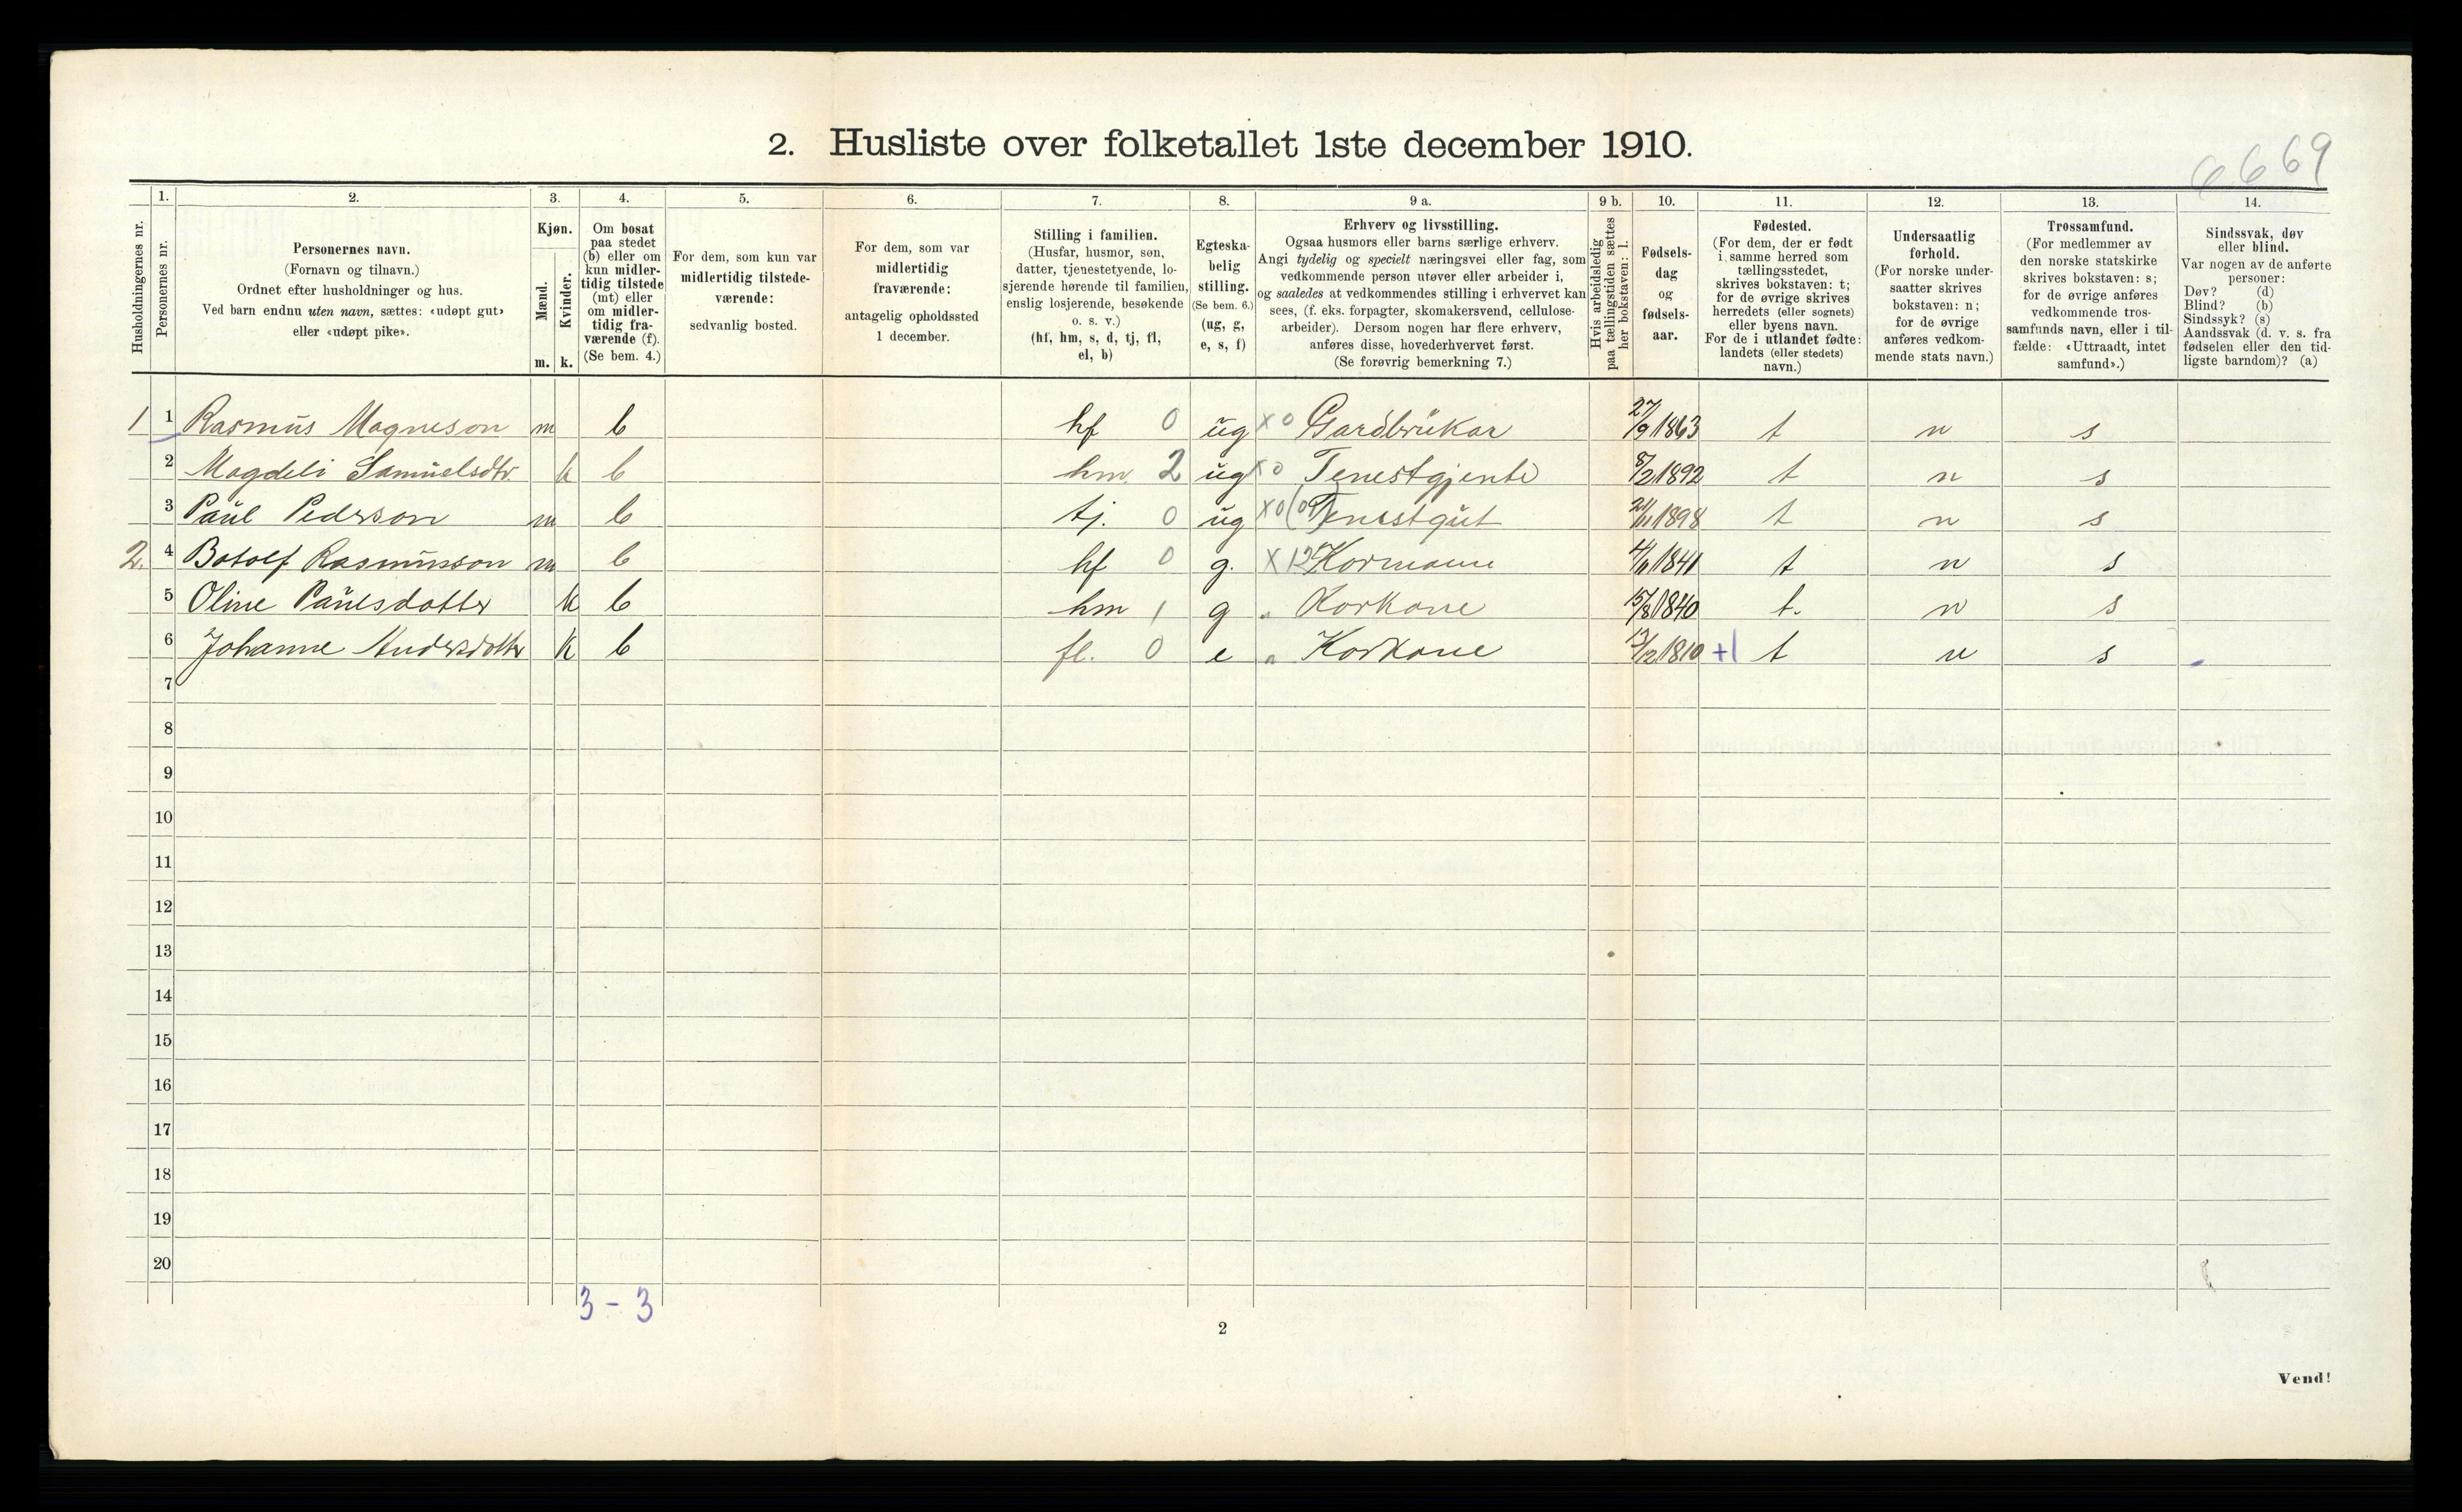 2. Husliste over folketallet 1ste december 1910.
6669
Husholdningernes nr.
1.
Personernes nr.
2.
Personernes navn.
(Fornavn og tilnavn.)
Ordnet efter husholdninger og hus.
Ved barn endnu uten navn, sættes: «udøpt gut»
eller «udøpt pike».
3.
Kjøn.
Mænd.
Kvinder.
m. k.
4.
Om bosat
paa stedet
(b) eller om
kun midler-
tidig tilstede
(mt) eller
om midler-
tidig fra-
værende (f).
(Se bem. 4.)
5.
For dem, som kun var
midlertidig tilstede-
værende:
sedvanlig bosted.
6.
For dem, som var
midlertidig
fraværende:
antagelig opholdssted
1 december.
7.
Stilling i familien.
(Husfar, husmor, søn,
datter, tjenestetyende, lo-
sjerende hørende til familien,
enslig losjerende, besøkende
o. s. v.)
(hf, hm, s, d, tj, fl,
el, b)
8.
Egteska-
belig
stilling.
(Se bem. 6.)
(ug, g,
e, s, f)
9 a.
Erhverv og livsstilling.
Ogsaa husmors eller barns særlige erhverv.
Angi tydelig og specielt næringsvei eller fag, som
vedkommende person utøver eller arbeider i,
og saaledes at vedkommendes stilling i erhvervet kan
sees, (f. eks. forpagter, skomakersvend, cellulose-
arbeider). Dersom nogen har flere erhverv,
anføres disse, hovederhvervet først.
(Se forøvrig bemerkning 7.)
9 b.
Hvis arbeidsledig
paa tællingstiden sættes
her bokstaven: l.
10.
Fødsels-
dag
og
fødsels-
aar.
11.
Fødested.
(For dem, der er født
i samme herred som
tællingsstedet,
skrives bokstaven: t;
for de øvrige skrives
herredets (eller sognets)
eller byens navn.
For de i utlandet fødte:
landets (eller stedets)
navn.)
12.
Undersaatlig
forhold.
(For norske under-
saatter skrives
bokstaven: n;
for de øvrige
anføres vedkom-
mende stats navn.)
13.
Trossamfund.
(For medlemmer av
den norske statskirke
skrives bokstaven: s;
for de øvrige anføres
vedkommende tros-
samfunds navn, eller i til-
fælde: «Uttraadt, intet
samfund».)
14.
Sindssvak, døv
eller blind.
Var nogen av de anførte
personer:
Døv? (d)
Blind? (b)
Sindssyk? (s)
Aandssvak (d. v. s. fra
fødselen eller den tid-
ligste barndom)? (a)
1 1 Rasmus Magneson m b hf 0 ug x 0 Gardbrukar 27/9 1863 t n s
2 Magdeli Samuelsdtr. k b hm 2 ug x 0 Tenestgjente 8/2 1892 t n s
3 Paul Pederson m b tj. 0 ug x 0 Tenestgut 1898 t n s
2. 4 Botolf Rasmusson m b hf 0 g. x 12 Kormann 1841 t n s
5 Oline Paulsdotter k b hm 1 g „ Korkone 15/8 1840 t. n s
6 Johanne Andersdotter k b fl. 0 e „ Korkone 1810 +1 t n s
7
8
9
10
11
12
13
14
15
16
17
18
19
20
3 - 3
2
Vend!